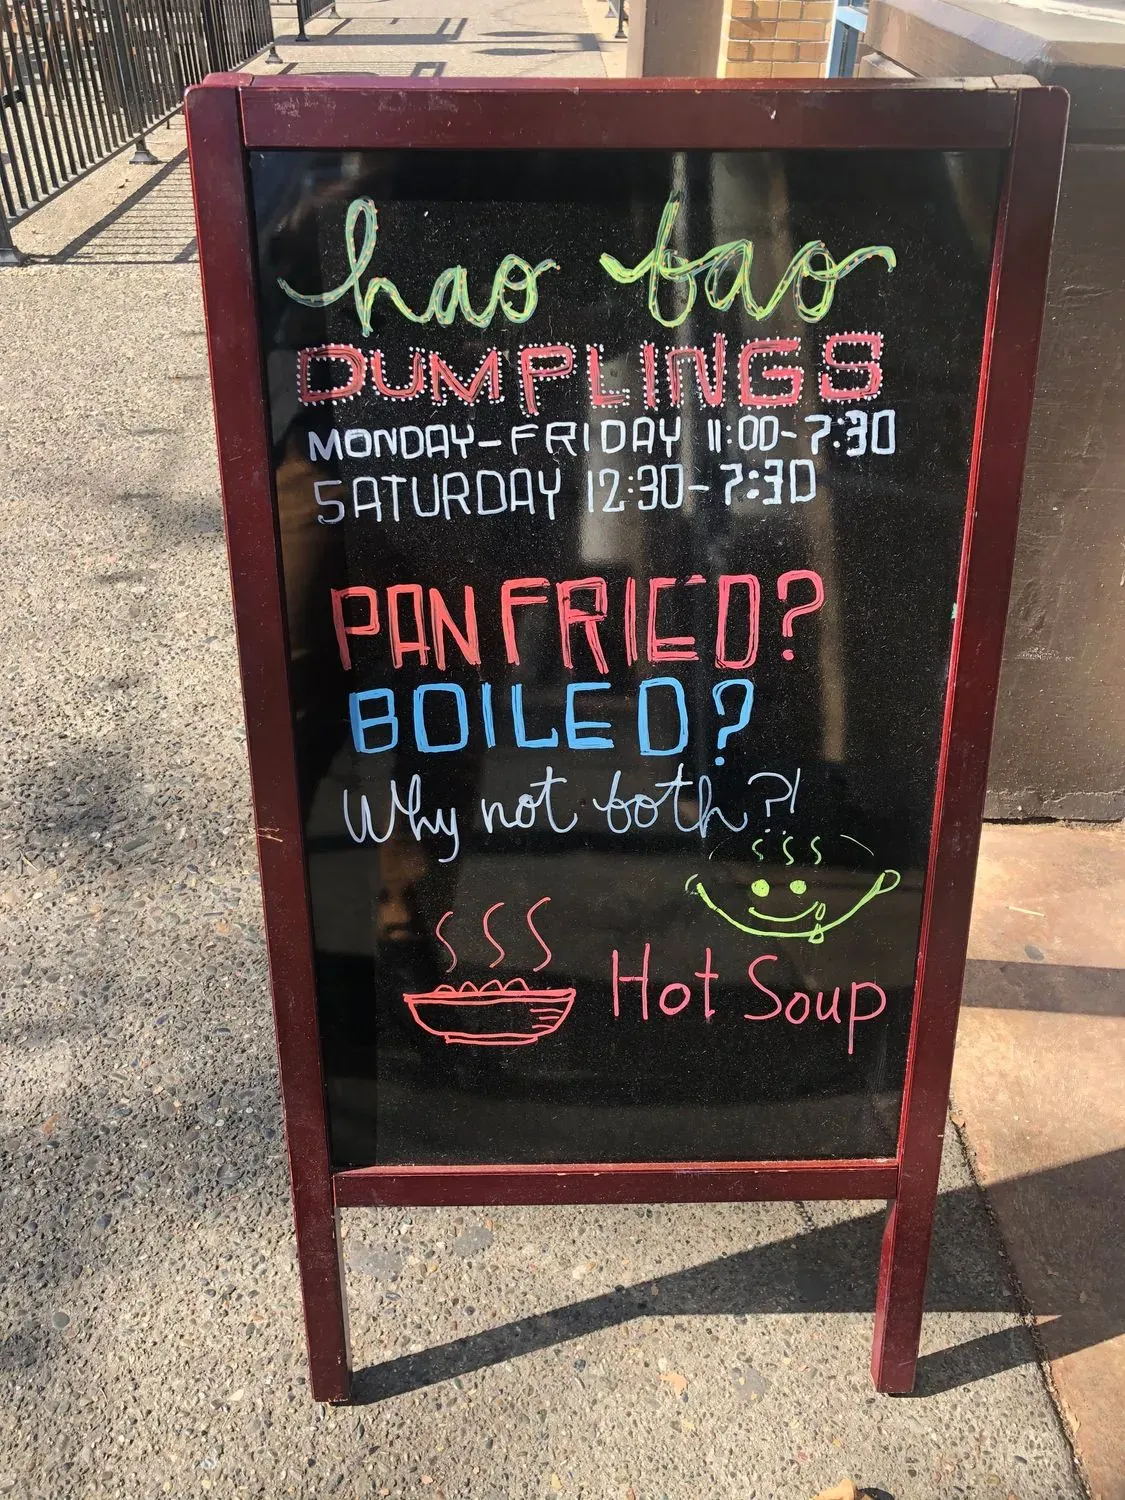 hao bao
DUMPLINGS
MONDAY-FRIDAY 11:00-7:30
SATURDAY 12:30-7:30
PAN FRIED?
BOILED?
Why not both?!
Hot Soup